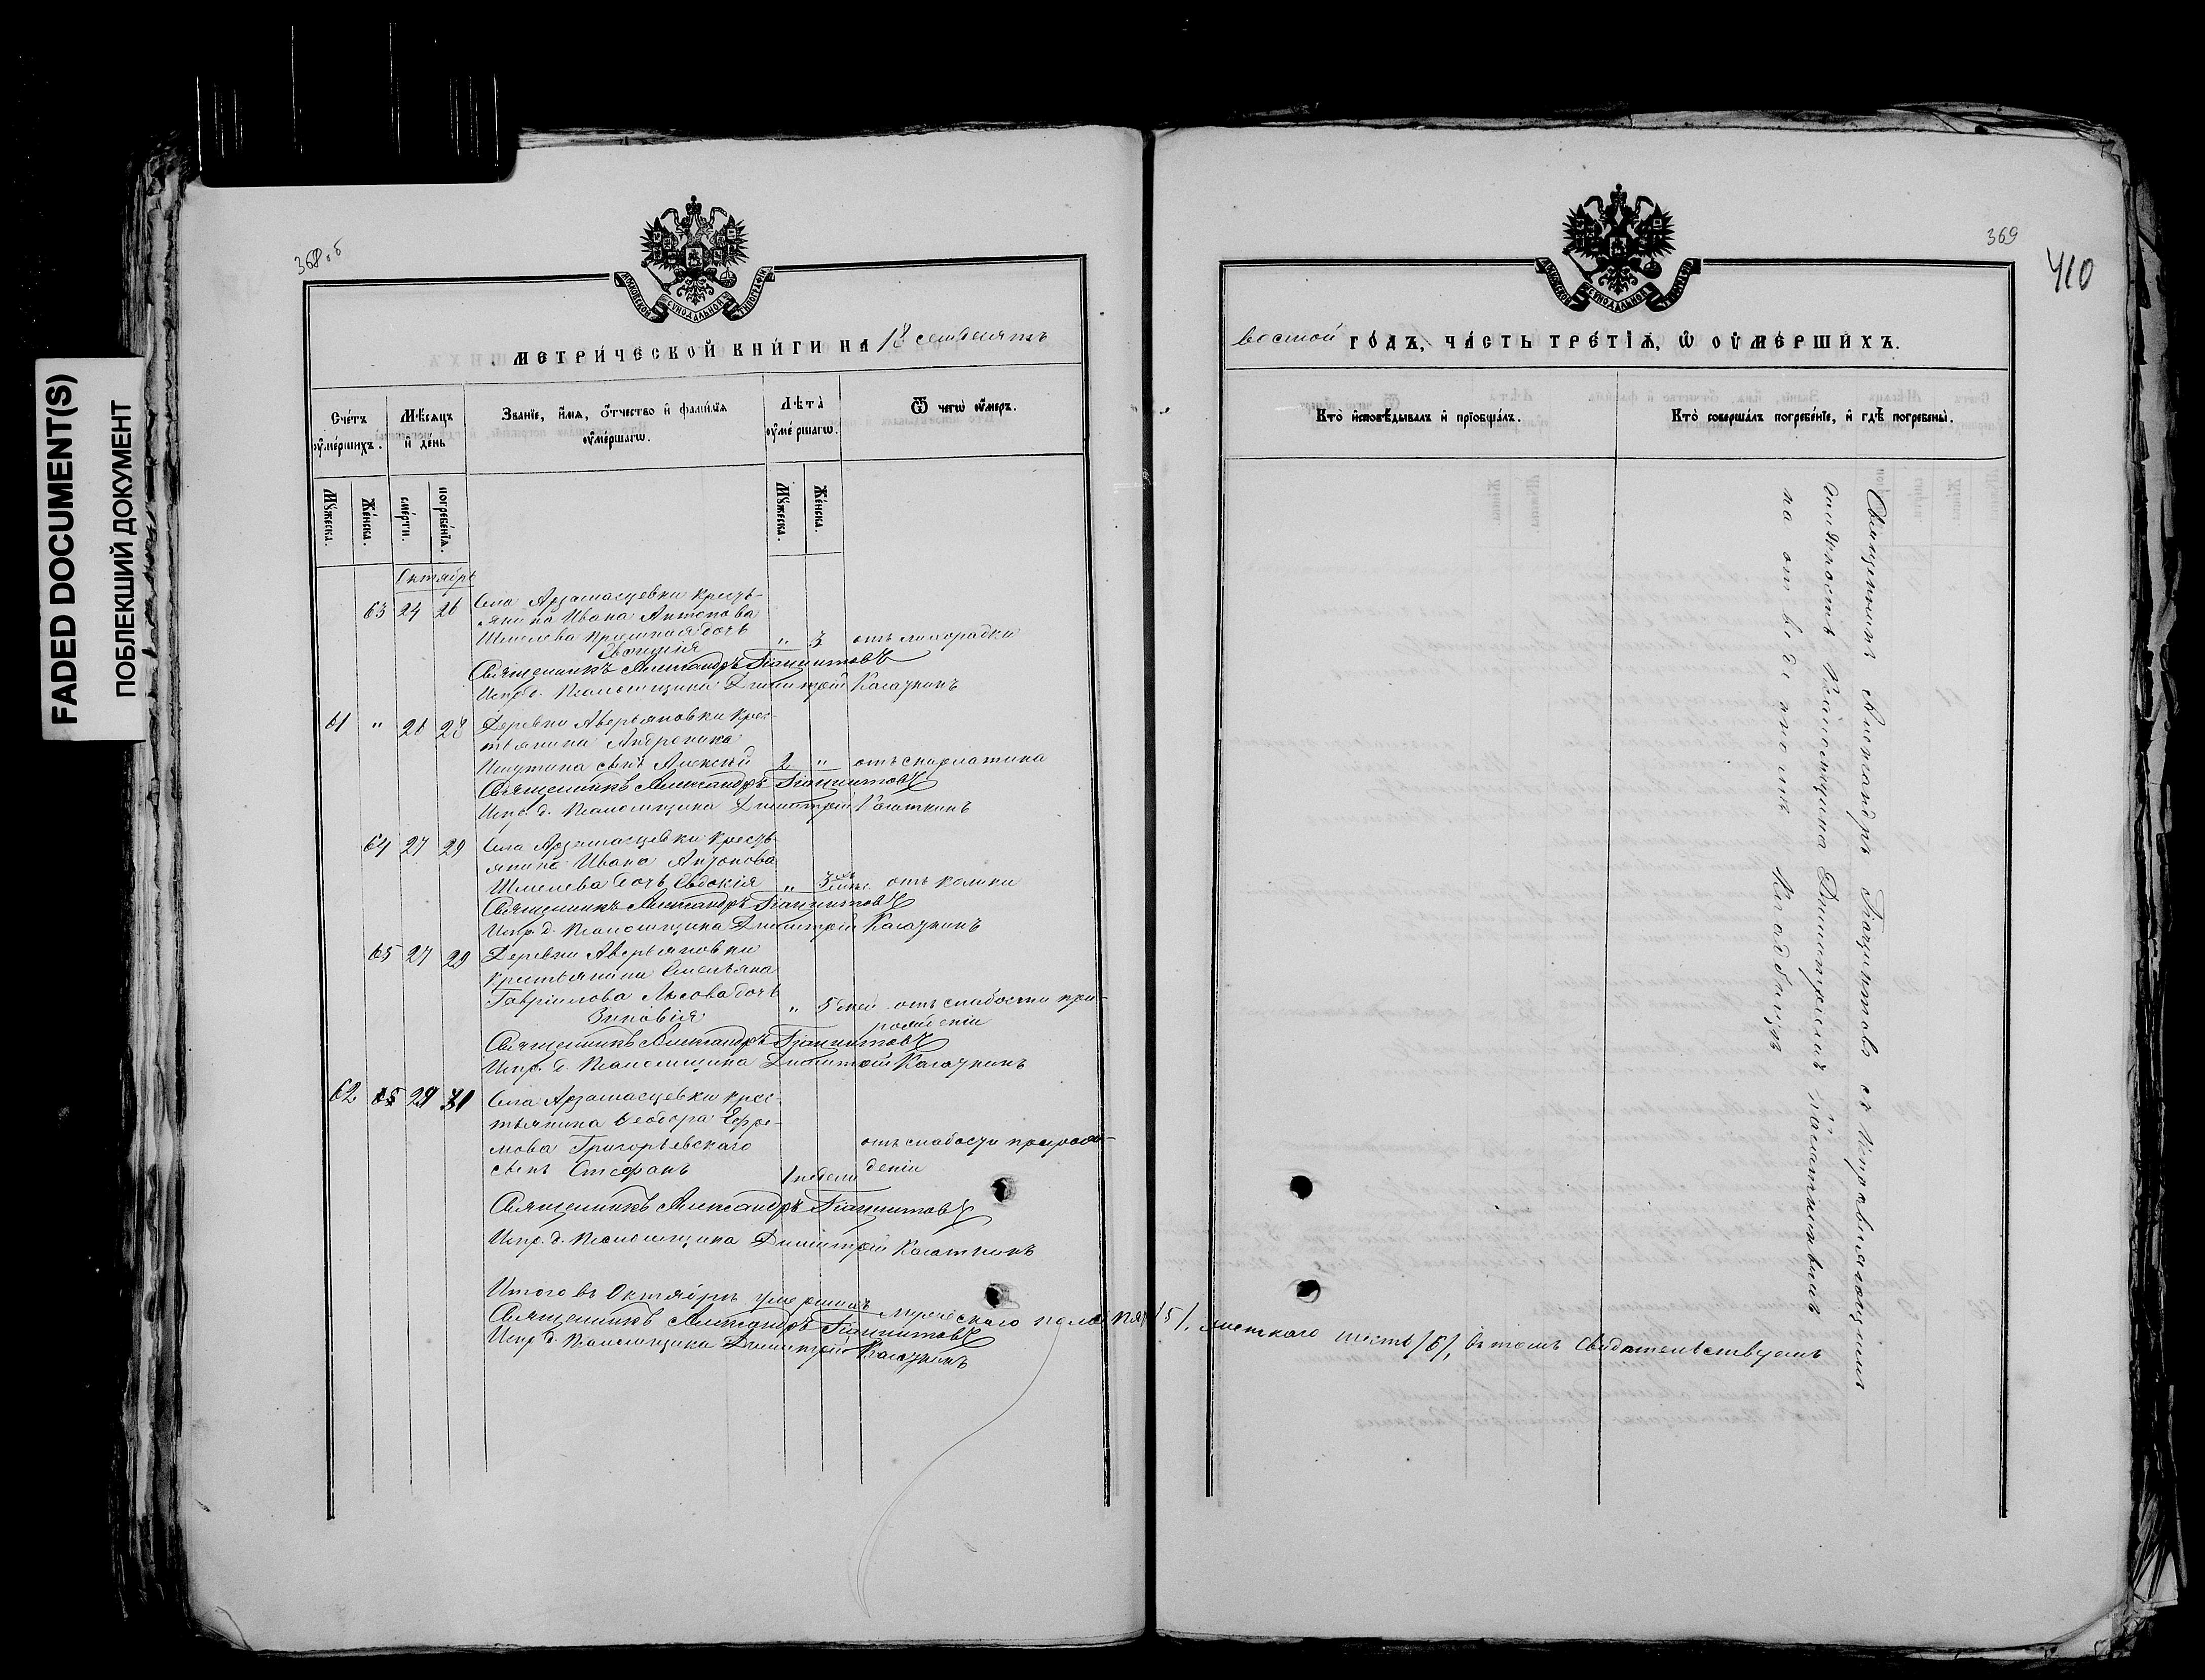 FADED DOCUMENT(S)
ПОБЛЕКШИЙ ДОКУМЕНТ
368 об
МОСКОВСКОЙ СѴНОДАЛЬНОЙ ТИПОГРАФІИ
МЕТРИ́ЧЕСКОЙ КНИ́ГИ НА 18 семьдесятъ
Сче́тъ ᲂу҆ме́ршихъ.
Мѣ́сяцъ и҆ де́нь
Зва́нїе, и҆́мѧ, ѻ҆́тчество и҆ фами́лїѧ
ᲂу҆ме́ршагѡ.
Лѣта̀
ᲂу҆ме́ршагѡ.
Ѿ чегѡ̀ ᲂу҆́меръ.
Мꙋ́жеска.
Же́нска.
сме́рти.
погребе́нїѧ.
Мꙋ́жеска.
Же́нска.
Октябрь
63 24 26 Села Арзамасцевки кресть-
янина Ивана Антонова
Шмелева дочь " 3 отъ лихорадки
Священникъ Александръ Гіацинтовъ
Испр. д. Псаломщика Димитрій Касаткинъ
61 " 26 28 Деревни Аверьяновки крес-
тьянина Андроника
сынъ Алексѣй 2 " отъ скарлатина
Священникъ Александръ Гіацинтовъ
Испр. д. Псаломщика Димитрій Касаткинъ
64 27 29 Села Арзамасцевки кресть-
янина Ивана Антонова
Шмелева дочь Евдокія " 3 отъ колики
Священникъ Александръ Гіацинтовъ
Испр. д. Псаломщика Димитрій Касаткинъ
65 27 29 Деревни Аверьяновки
крестьянина Емельяна
Гавріилова Лысова дочь
Зиновія " 5 дней отъ слабости при
рожденіи
Священникъ Александръ Гіацинтовъ
Испр. д. Псаломщика Димитрій Касаткинъ
62 29 31 Села Арзамасцевки крес-
тьянина Ѳеодора Ефре-
мова Григорьевскаго отъ слабости при рож-
сынъ Стефанъ 1 недели деніи
Священникъ Александръ Гіацинтовъ
Испр. д. Псаломщика Димитрій Касаткинъ
Итого въ Октябрѣ умершихъ мужескаго пола пять /5/, женскаго шесть /6/, въ томъ свидѣтельствуемъ
Священникъ Александръ Гіацинтовъ
Испр. д. Псаломщика Димитрій Касаткинъ
369
410
МОСКОВСКОЙ СѴНОДАЛЬНОЙ ТИПОГРАФІИ
восмой ГО́ДЪ, ЧА́СТЬ ТРЕ́ТЇѦ, Ѽ ОУ҆МЕ́РШИХЪ.
Кто̀ и҆сповѣ́дывалъ и҆ прїѡбща́лъ.
Кто̀ соверша́лъ погребе́нїе, и҆ гдѣ̀ погребены̀.
Священникъ Александръ Гіацинтовъ съ Исправляющимъ
должность Псаломщика Димитріемъ Касаткинымъ
на отведеномъ кладбищѣ